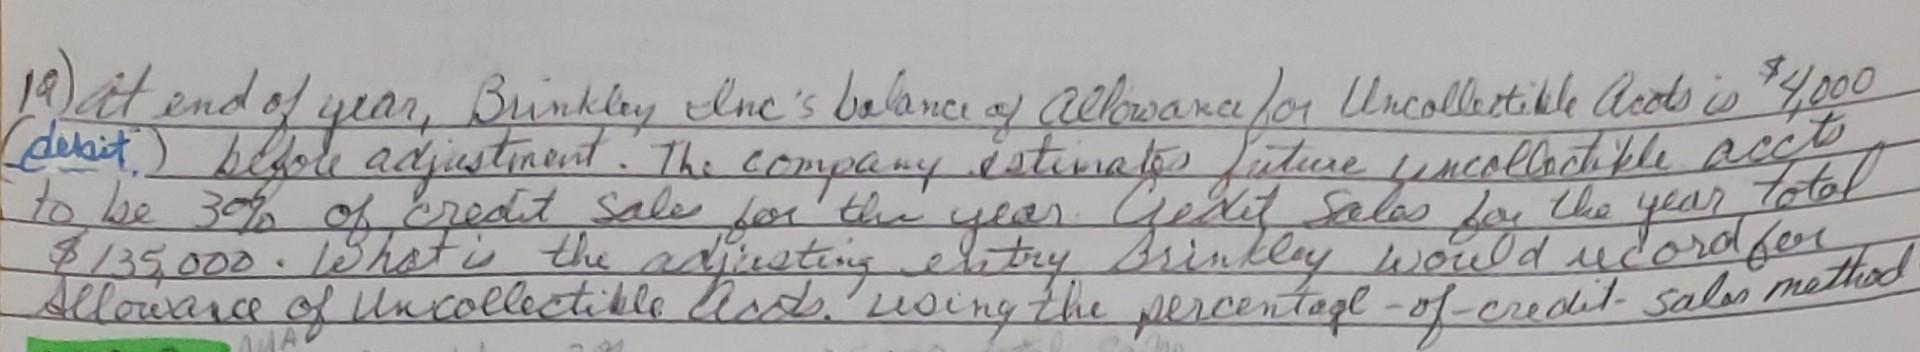 19) At end of year, Brinkley Inc's balance of Allowance for Uncollectible Accts is $4,000
(debit.) before adjustment. The company estimates future uncollectible accts
to be 30% of credit sales for the year. Credit Sales for the year total
$135,000. What is the adjusting entry Brinkley would record for
Allowance of Uncollectible Accts. using the percentage-of-credit-sales method